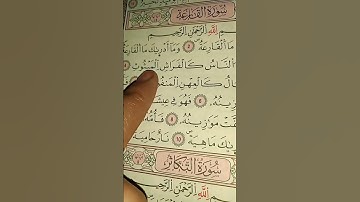 سُورَةُ القَارِعَةِ
بِسْمِ اللَّهِ الرَّحْمَٰنِ الرَّحِيمِ
مَا الْقَارِعَةُ ٢ وَمَا أَدْرَاكَ مَا الْقَارِعَةُ
النَّاسُ كَالْفَرَاشِ الْمَبْثُوثِ ٤
كَالْعِهْنِ الْمَنفُ
فَهُوَ فِي عِيشَ
مَوَازِينُهُ ٨ فَأُمُّهُ
مَا هِيَهْ ١٠ نَارٌ حَامِيَةٌ
سُورَةُ التَّكَاثُرِ
بِسْمِ اللَّهِ الرَّحْمَٰنِ الرَّحِيمِ